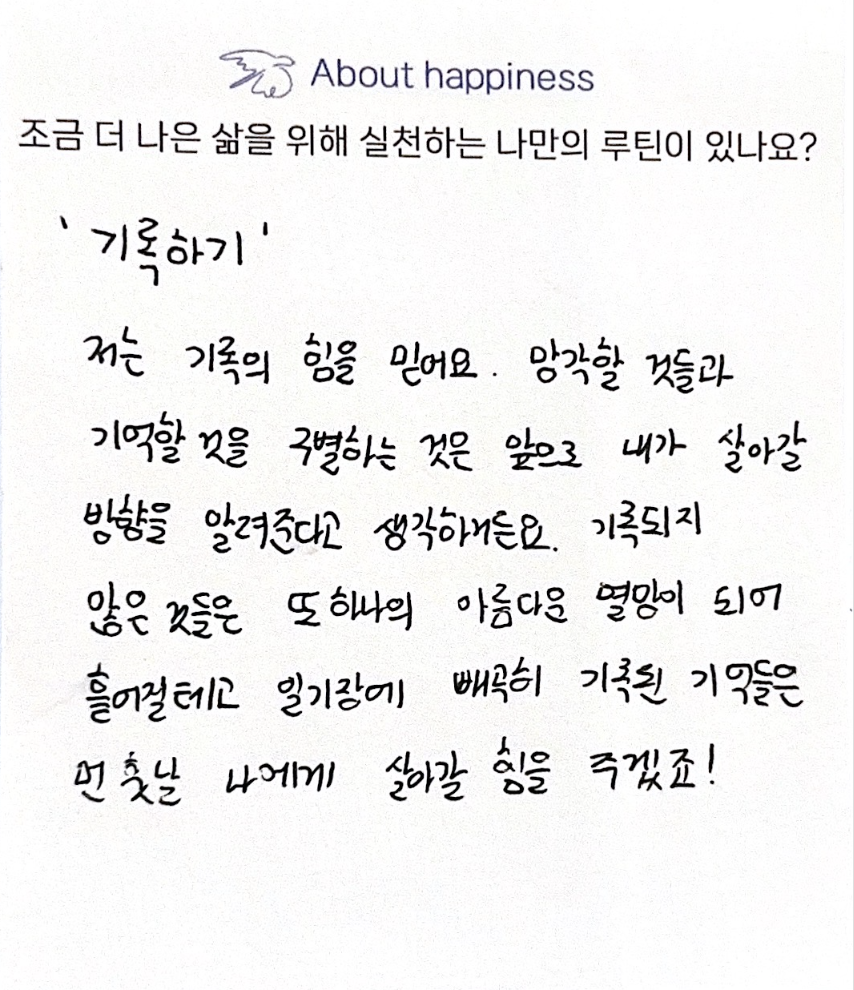 About happiness
조금 더 나은 삶을 위해 실천하는 나만의 루틴이 있나요?
'기록하기'
저는 기록의 힘을 믿어요. 망각할 것들과
기억할 것을 구별하는 것은 앞으로 내가 살아갈
방향을 알려준다고 생각하거든요. 기록되지
않은 것들은 또 하나의 아름다운 열망이 되어
흩어질테고 일기장에 빼곡히 기록된 기억들은
먼 훗날 나에게 살아갈 힘을 주겠죠!